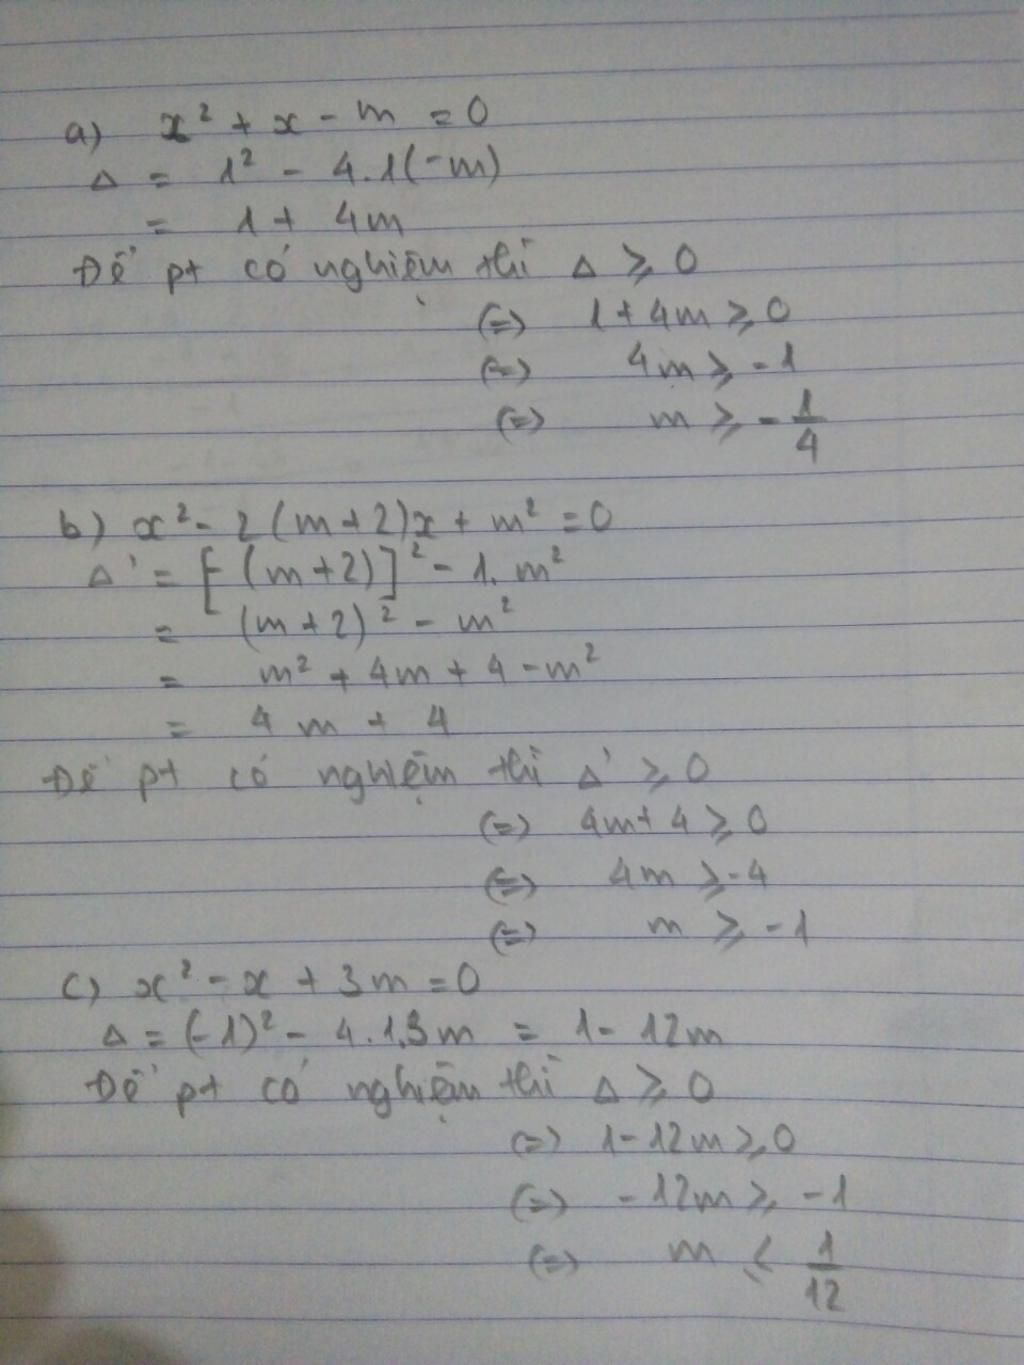 a) x² + x - m = 0
Δ = 1² - 4.1(-m)
= 1 + 4m
Để pt có nghiệm thì Δ ≥ 0
(=) 1 + 4m ≥ 0
(=) 4m ≥ -1
(=) m ≥ -1/4
b) x² - 2(m+2)x + m² = 0
Δ' = [-(m+2)]² - 1.m²
= (m+2)² - m²
= m² + 4m + 4 - m²
= 4m + 4
Để pt có nghiệm thì Δ' ≥ 0
(=) 4m + 4 ≥ 0
(=) 4m ≥ -4
(=) m ≥ -1
c) x² - x + 3m = 0
Δ = (-1)² - 4.1.3m = 1 - 12m
Để pt có nghiệm thì Δ ≥ 0
(=) 1 - 12m ≥ 0
(=) -12m ≥ -1
(=) m ≤ 1/12